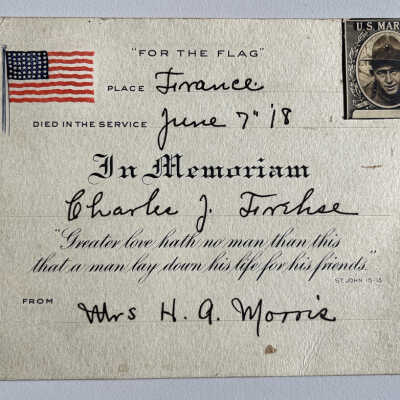 "FOR THE FLAG"
U.S. MAR
PLACE France
DIED IN THE SERVICE June 7" 18
In Memoriam
Charles J. Frehse
"Greater love hath no man than this
that a man lay down his life for his friends."
ST. JOHN 15-13
FROM Mrs H. A. Morris